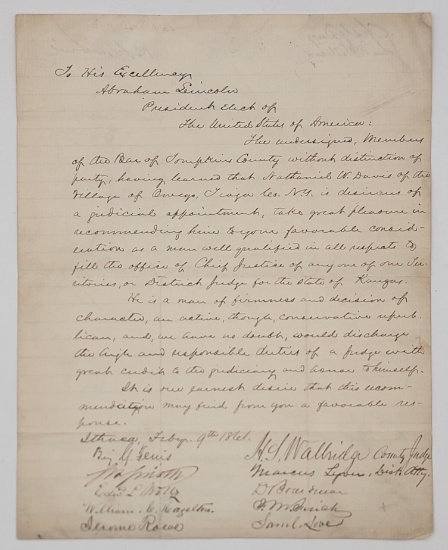 To His Excellency
Abraham Lincoln
President elect of
The United States of America:
The undersigned, Members
of the Bar of Tompkins County without distinction of
party, having learned that Nathaniel W. Davis of the
Village of Owego, Tioga Co. N.Y. is desirous of
a judicial appointment, take great pleasure in
recommending him to your favorable consid-
eration as a man well qualified in all respects to
fill the office of Chief Justice of any one of our Ter-
ritories, or District Judge for the State of Kansas.
He is a man of firmness and decision of
character, an active, though conservative repub-
lican, and, we have no doubt, would discharge
the high and responsible duties of a Judge with
great credit to the judiciary and honor to himself.
It is our earnest desire that this recom-
mendation may find from you a favorable res-
ponse.
Ithaca, Feby. 9th 1861.
H. S. Walbridge County Judge
Marcus Lyon, Dist. Atty.
D Boardman
William W. Hazelton
Jerome Rowe
Saml. Love